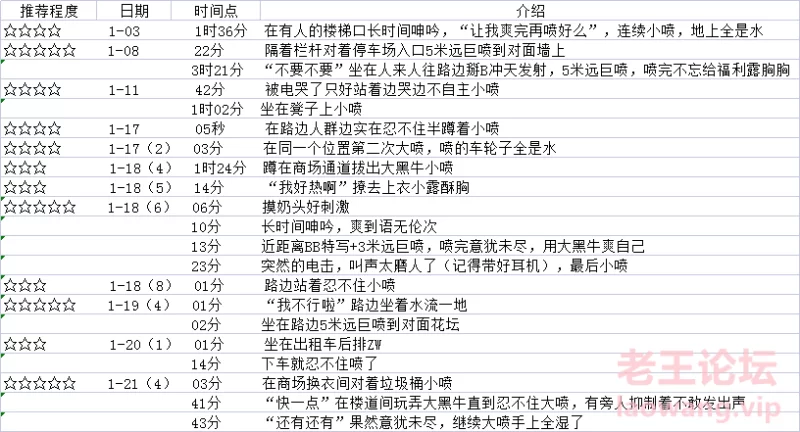 推荐程度 日期 时间点 介绍
☆☆☆☆ 1-03 1时36分 在有人的楼梯口长时间呻吟，“让我爽完再喷好么”，连续小喷，地上全是水
☆☆☆☆☆ 1-08 22分 隔着栏杆对着停车场入口5米远巨喷到对面墙上
3时21分 “不要不要”坐在人来人往路边掰B冲天发射，5米远巨喷，喷完不忘给福利露胸胸
☆☆☆☆ 1-11 42分 被电哭了只好站着边哭边不自主小喷
1时02分 坐在凳子上小喷
☆☆☆☆ 1-17 05秒 在路边人群边实在忍不住半蹲着小喷
☆☆☆☆ 1-17（2） 03分 在同一个位置第二次大喷，喷的车轮子全是水
☆☆☆☆ 1-18（4） 1时24分 蹲在商场通道拔出大黑牛小喷
☆☆☆ 1-18（5） 14分 “我好热啊”撩去上衣小露酥胸
☆☆☆☆☆ 1-18（6） 06分 摸奶头好刺激
10分 长时间呻吟，爽到语无伦次
13分 近距离BB特写+3米远巨喷，喷完意犹未尽，用大黑牛爽自己
23分 突然的电击，叫声太磨人了（记得带好耳机），最后小喷
☆☆☆ 1-18（8） 01分 路边站着忍不住小喷
☆☆☆☆☆ 1-19（4） 01分 “我不行啦”路边坐着水流一地
02分 坐在路边5米远巨喷到对面花坛
☆☆☆ 1-20（1） 01分 坐在出租车后排ZW
14分 下车就忍不住喷了
☆☆☆☆☆ 1-21（4） 03分 在商场换衣间对着垃圾桶小喷
41分 “快一点”在楼道间玩弄大黑牛直到忍不住大喷，有旁人抑制着不敢发出声
43分 “还有还有”果然意犹未尽，继续大喷手上全湿了
老王论坛
laowang.vip